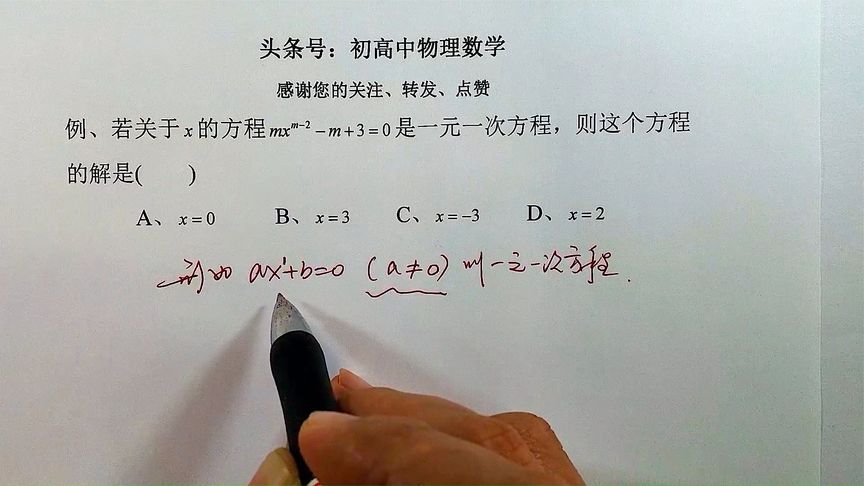 头条号：初高中物理数学
感谢您的关注、转发、点赞
例、若关于x的方程mx^{m-2}-m+3=0是一元一次方程，则这个方程
的解是(　　)
A、x=0　B、x=3　C、x=-3　D、x=2
形如 ax¹+b=0 (a≠0) 叫一元一次方程.